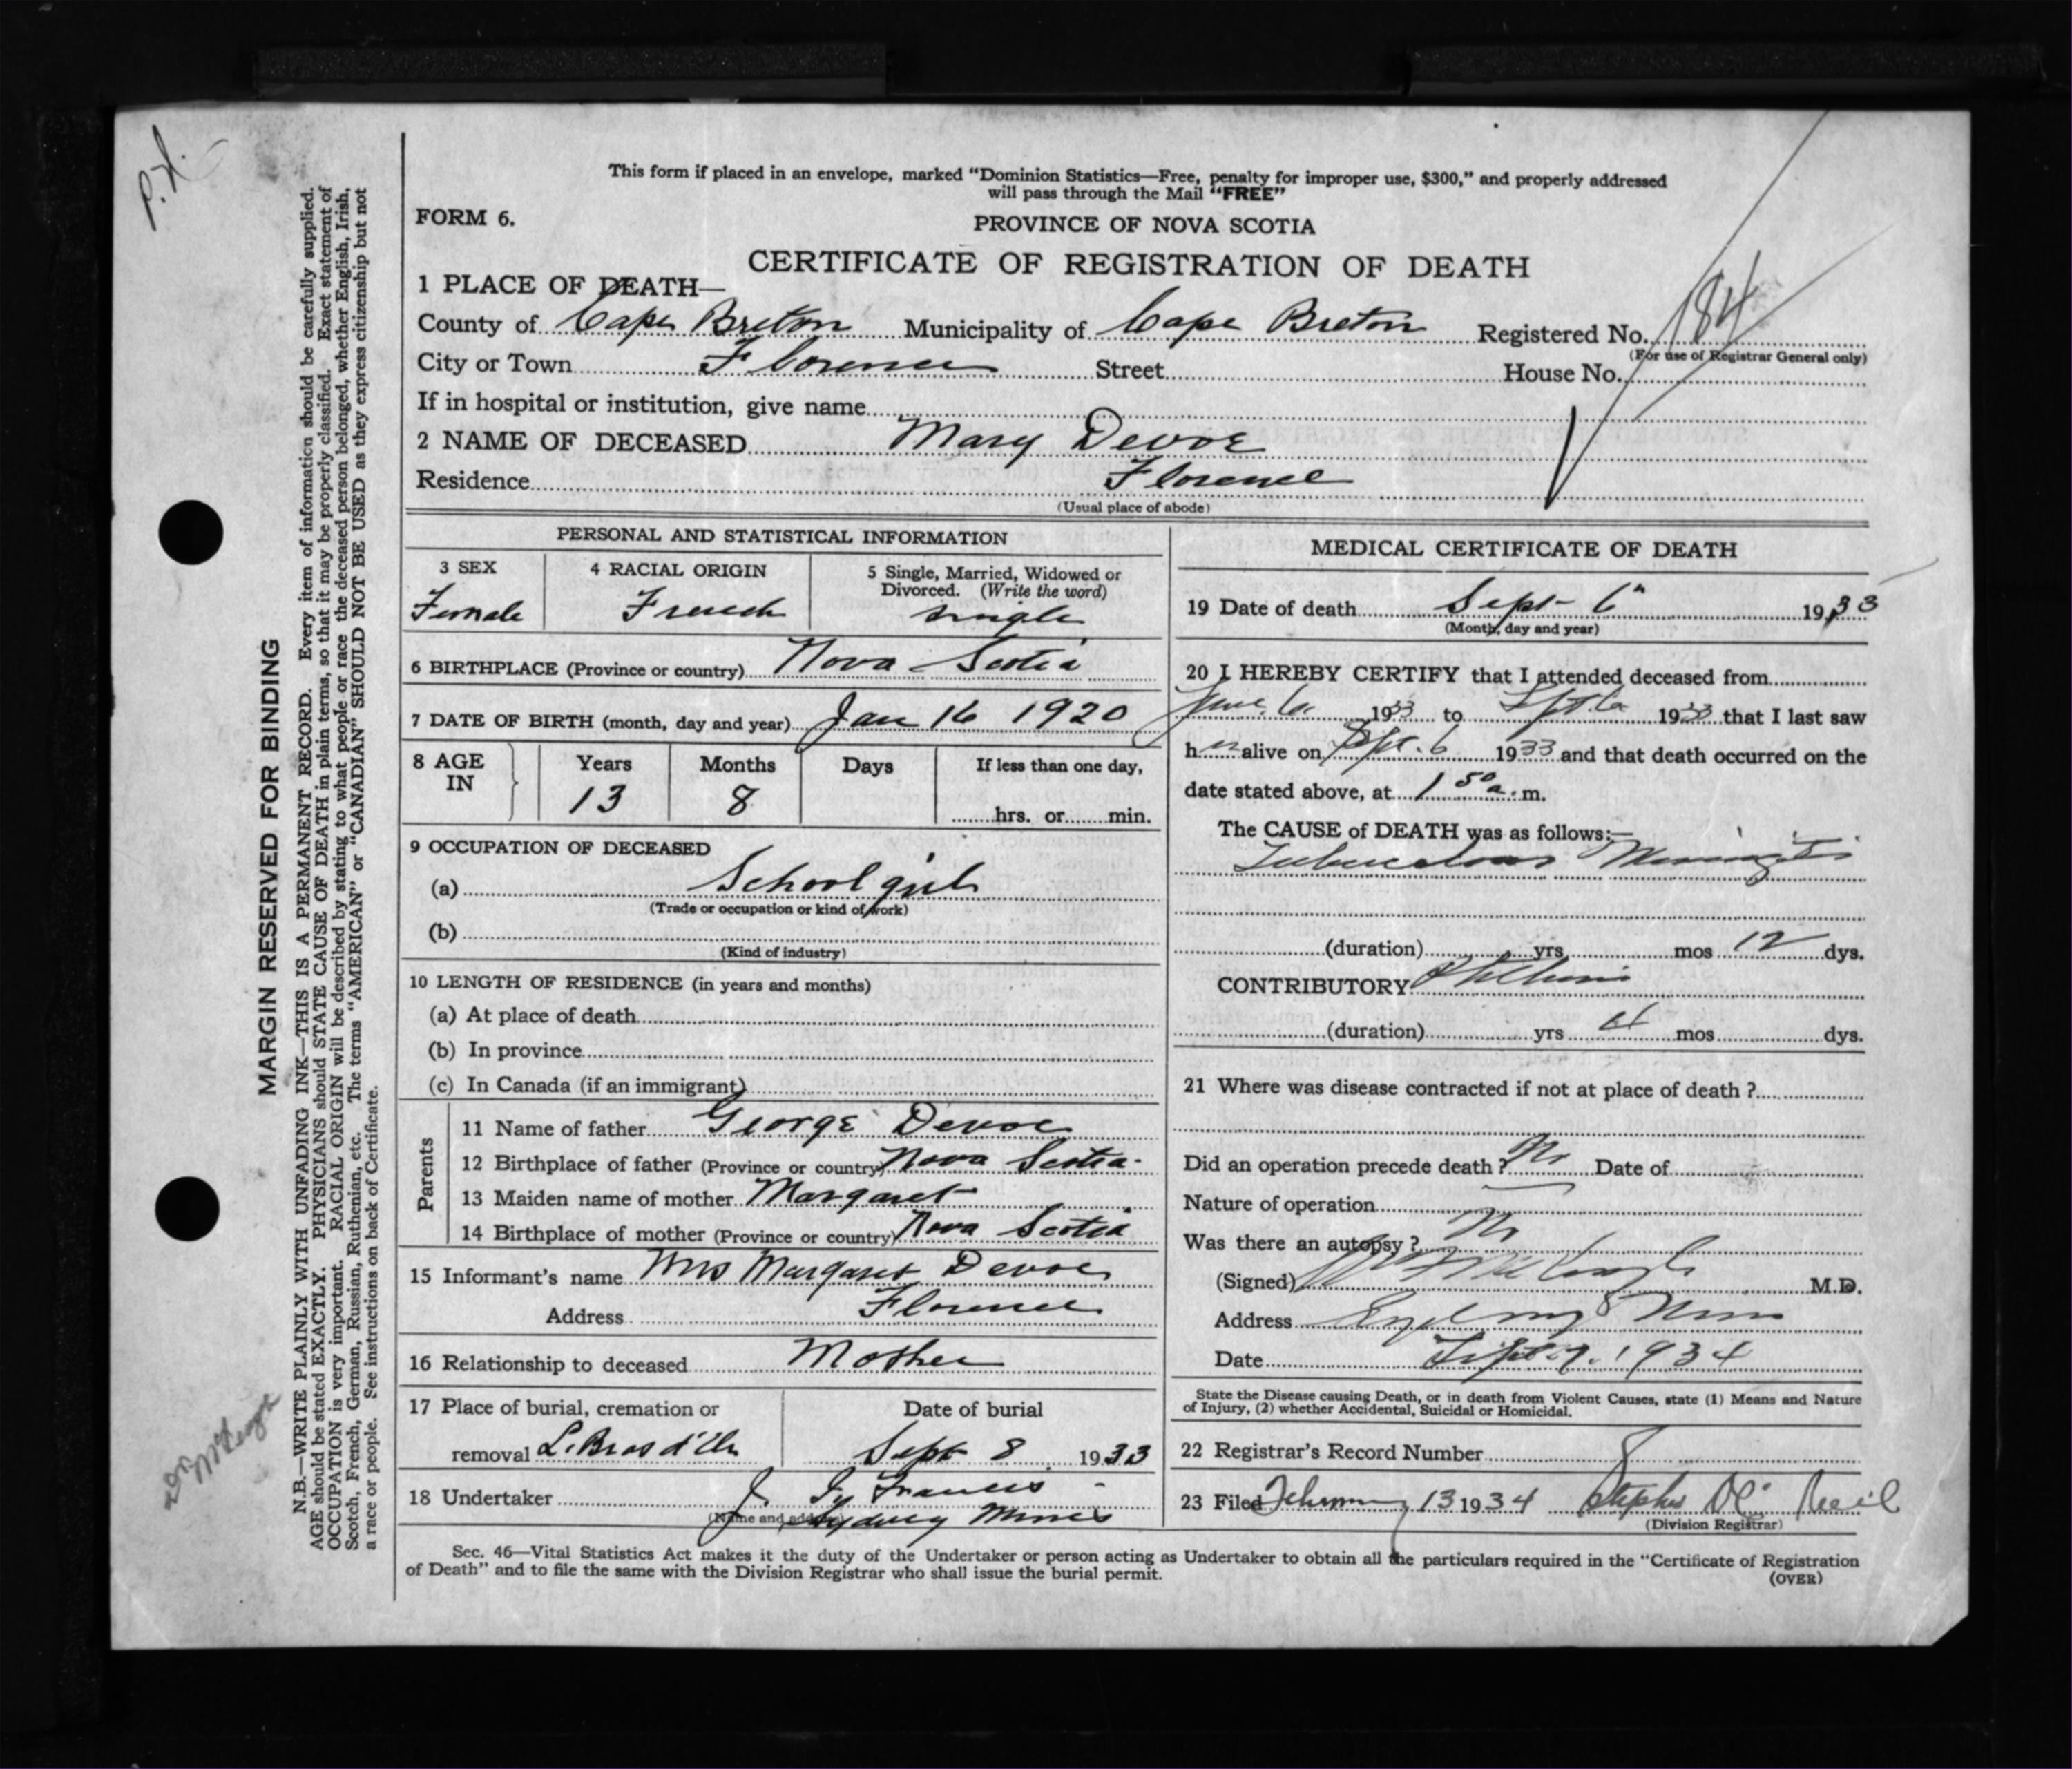 P.H.
This form if placed in an envelope, marked "Dominion Statistics—Free, penalty for improper use, $300," and properly addressed
will pass through the Mail "FREE"
FORM 6.
PROVINCE OF NOVA SCOTIA
CERTIFICATE OF REGISTRATION OF DEATH
1 PLACE OF DEATH—
County of Cape Breton Municipality of Cape Breton Registered No. 184
(For use of Registrar General only)
City or Town Florence Street House No.
If in hospital or institution, give name
2 NAME OF DECEASED Mary Devoe
Residence Florence
(Usual place of abode)
PERSONAL AND STATISTICAL INFORMATION
3 SEX 4 RACIAL ORIGIN 5 Single, Married, Widowed or
Divorced. (Write the word)
Female French single
6 BIRTHPLACE (Province or country) Nova Scotia
7 DATE OF BIRTH (month, day and year) Jan 16 1920
8 AGE IN Years Months Days If less than one day,
13 8
hrs. or min.
9 OCCUPATION OF DECEASED
(a) School girl
(Trade or occupation or kind of work)
(b)
(Kind of industry)
10 LENGTH OF RESIDENCE (in years and months)
(a) At place of death
(b) In province
(c) In Canada (if an immigrant)
Parents
11 Name of father George Devoe
12 Birthplace of father (Province or country) Nova Scotia
13 Maiden name of mother Margaret
14 Birthplace of mother (Province or country) Nova Scotia
15 Informant's name Mrs Margaret Devoe
Address Florence
16 Relationship to deceased Mother
17 Place of burial, cremation or Date of burial
removal L. Bras d'Or Sept 8 1933
18 Undertaker J. Francis
(Name and address) Sydney Mines
MEDICAL CERTIFICATE OF DEATH
19 Date of death Sept 6" 1933
(Month, day and year)
20 I HEREBY CERTIFY that I attended deceased from
June 1933 to Sept 6 1933 that I last saw
h er alive on Sept. 6 1933 and that death occurred on the
date stated above, at 1 50 a. m.
The CAUSE of DEATH was as follows:—
Tuberculous Meningitis
(duration) yrs mos 12 dys.
CONTRIBUTORY Phthisis
(duration) yrs mos dys.
21 Where was disease contracted if not at place of death?
Did an operation precede death? No Date of
Nature of operation
Was there an autopsy? No
(Signed) M.D.
Address Sydney Mines
Date 1934
State the Disease causing Death, or in death from Violent Causes, state (1) Means and Nature
of Injury, (2) whether Accidental, Suicidal or Homicidal.
22 Registrar's Record Number 8
23 Filed February 13 1934 Stephen Mc Neil
(Division Registrar)
Sec. 46—Vital Statistics Act makes it the duty of the Undertaker or person acting as Undertaker to obtain all the particulars required in the "Certificate of Registration
of Death" and to file the same with the Division Registrar who shall issue the burial permit.
(OVER)
MARGIN RESERVED FOR BINDING
N.B.—WRITE PLAINLY WITH UNFADING INK—THIS IS A PERMANENT RECORD. Every item of information should be carefully supplied.
AGE should be stated EXACTLY. PHYSICIANS should STATE CAUSE OF DEATH in plain terms, so that it may be properly classified. Exact statement of
OCCUPATION is very important. RACIAL ORIGIN will be described by stating to what people or race the deceased person belonged, whether English, Irish,
Scotch, French, German, Russian, Ruthenian, etc. The terms "AMERICAN" or "CANADIAN" SHOULD NOT BE USED as they express citizenship but not
a race or people. See instructions on back of Certificate.
Dr. McKeough